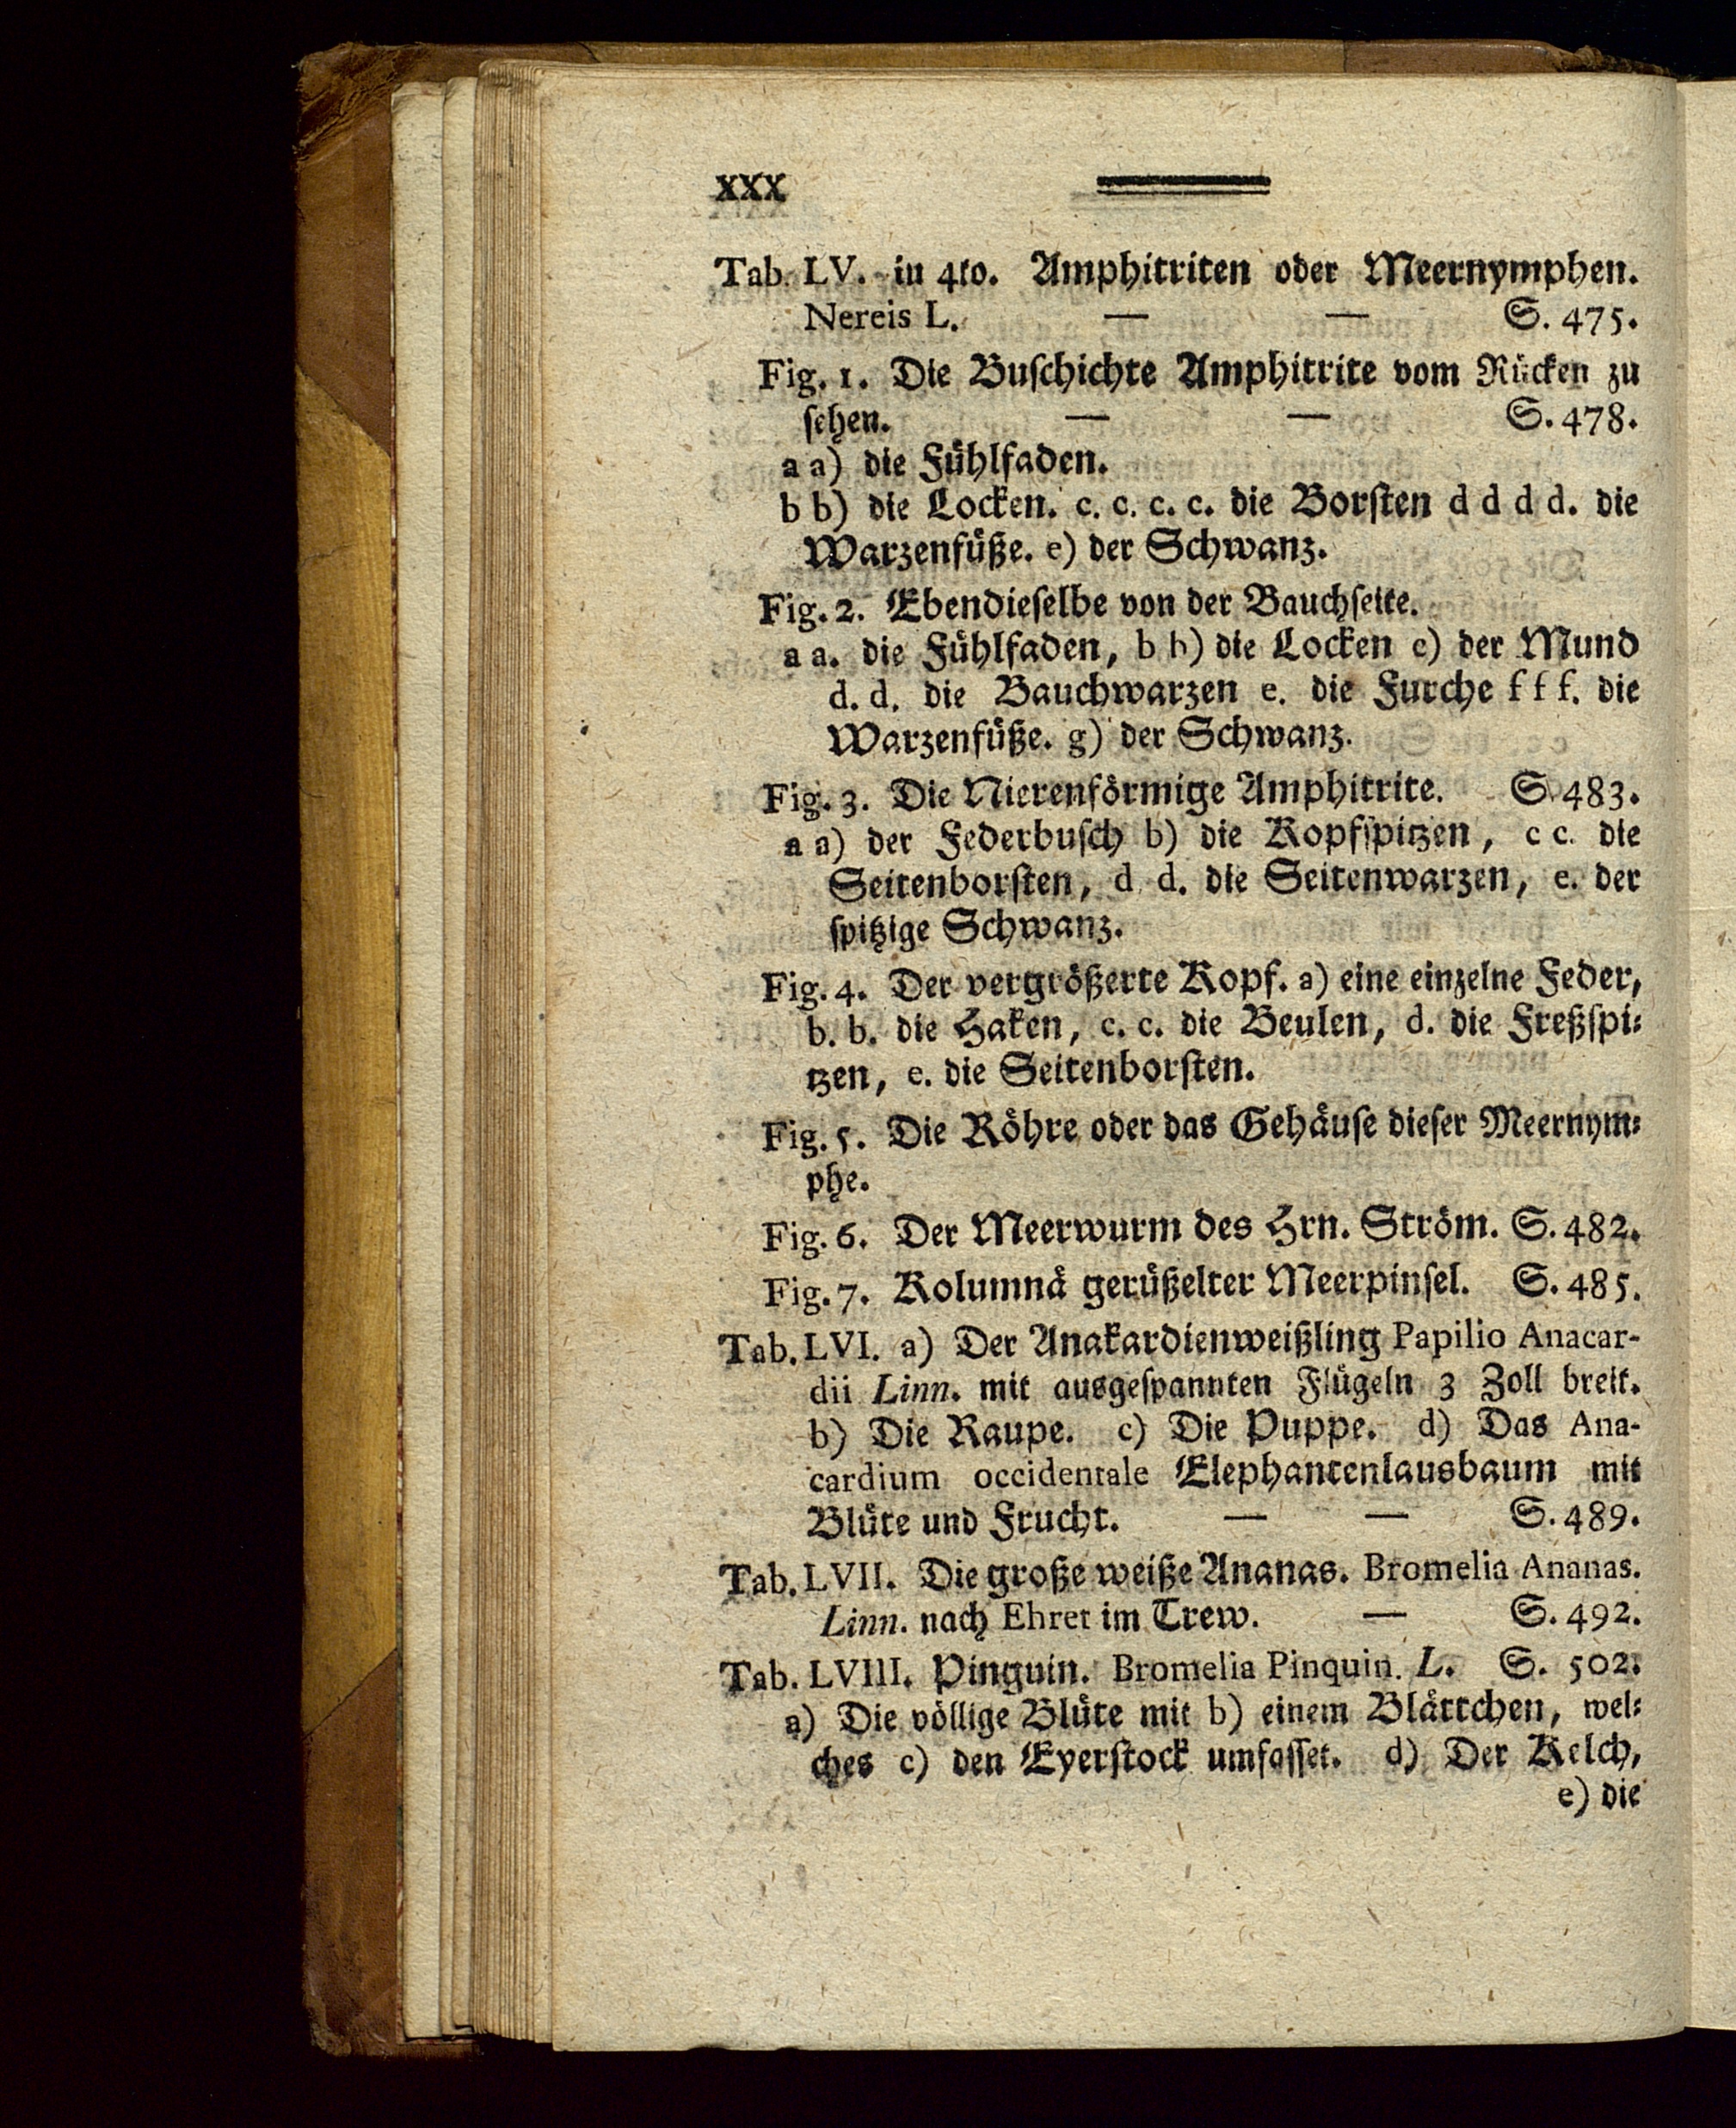 XXX
Tab. LV. in 4to. Amphitriten oder Meernymphen.
Nereis L. — — S. 475.
Fig. 1. Die Buschichte Amphitrite vom Rücken zu
sehen. — — S. 478.
a a) die Fühlfaden.
b b) die Locken. c. c. c. c. die Borsten d d d d. die
Warzenfüße. e) der Schwanz.
Fig. 2. Ebendieselbe von der Bauchseite.
a a. die Fühlfaden, b b) die Locken c) der Mund
d. d. die Bauchwarzen e. die Furche f f f. die
Warzenfüße. g) der Schwanz.
Fig. 3. Die Nierenförmige Amphitrite. S. 483.
a a) der Federbusch b) die Kopfspitzen, c c. die
Seitenborsten, d d. die Seitenwarzen, e. der
spitzige Schwanz.
Fig. 4. Der vergrößerte Kopf. a) eine einzelne Feder,
b. b. die Haken, c. c. die Beulen, d. die Freßspi-
tzen, e. die Seitenborsten.
Fig. 5. Die Röhre oder das Gehäuse dieser Meernym-
phe.
Fig. 6. Der Meerwurm des Hrn. Ström. S. 482.
Fig. 7. Kolumnä gerüßelter Meerpinsel. S. 485.
Tab. LVI. a) Der Anakardienweißling Papilio Anacar-
dii Linn. mit ausgespannten Flügeln 3 Zoll breit.
b) Die Raupe. c) Die Puppe. d) Das Ana-
cardium occidentale Elephantenlausbaum mit
Blüte und Frucht. — — S. 489.
Tab. LVII. Die große weiße Ananas. Bromelia Ananas.
Linn. nach Ehret im Trew. — S. 492.
Tab. LVIII. Pinguin. Bromelia Pinquin. L. S. 502.
a) Die völlige Blüte mit b) einem Blättchen, wel-
ches c) den Eyerstock umfasset. d) Der Kelch,
e) die